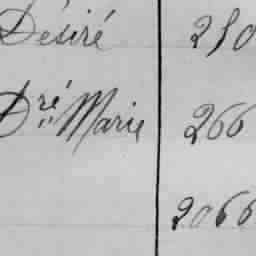 Désiré 210
Dré Marie 266
2066